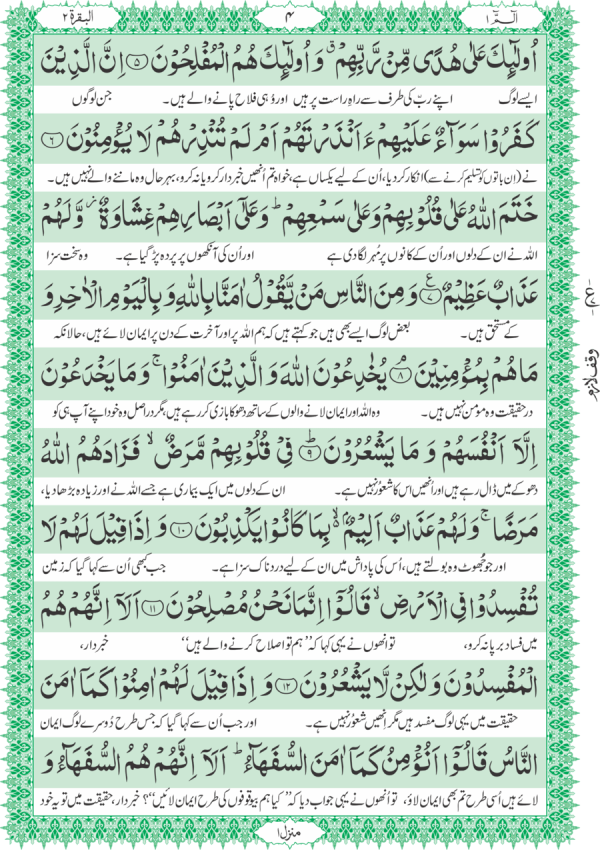 الٓمّٓ ١
۴
البقرة ٢
اُولٰٓئِكَ عَلٰى هُدًى مِّنْ رَّبِّهِمْ ۗ وَ اُولٰٓئِكَ هُمُ الْمُفْلِحُوْنَ ۝۵ اِنَّ الَّذِيْنَ
ایسے لوگ اپنے ربّ کی طرف سے راہِ راست پر ہیں اور وُہی فلاح پانے والے ہیں۔ جن لوگوں
كَفَرُوْا سَوَآءٌ عَلَيْهِمْ ءَاَنْذَرْتَهُمْ اَمْ لَمْ تُنْذِرْهُمْ لَا يُؤْمِنُوْنَ ۝۶
نے (اِن باتوں کو تسلیم کرنے سے) انکار کر دیا، اُن کے لیے یکساں ہے، خواہ تم اُنھیں خبردار کرو یا نہ کرو، بہرحال وہ ماننے والے نہیں ہیں۔
خَتَمَ اللّٰهُ عَلٰى قُلُوْبِهِمْ وَ عَلٰى سَمْعِهِمْ ؕ وَ عَلٰٓى اَبْصَارِهِمْ غِشَاوَةٌ ؗ وَّ لَهُمْ
اللہ نے ان کے دلوں اور اُن کے کانوں پر مُہر لگا دی ہے اور اُن کی آنکھوں پر پردہ پڑ گیا ہے۔ وہ سخت سزا
عَذَابٌ عَظِيْمٌ ۝۷ وَ مِنَ النَّاسِ مَنْ يَّقُوْلُ اٰمَنَّا بِاللّٰهِ وَ بِالْيَوْمِ الْاٰخِرِ وَ
کے مستحق ہیں۔ بعض لوگ ایسے بھی ہیں جو کہتے ہیں کہ ہم اللہ پر اور آخرت کے دن پر ایمان لائے ہیں، حالانکہ
مَا هُمْ بِمُؤْمِنِيْنَ ۝۸ يُخٰدِعُوْنَ اللّٰهَ وَ الَّذِيْنَ اٰمَنُوْا ۚ وَ مَا يَخْدَعُوْنَ
در حقیقت وہ مومن نہیں ہیں۔ وہ اللہ اور ایمان لانے والوں کے ساتھ دھوکا بازی کر رہے ہیں، مگر دراصل وہ خود اپنے آپ ہی کو
اِلَّآ اَنْفُسَهُمْ وَ مَا يَشْعُرُوْنَ ۝۹ؕ فِيْ قُلُوْبِهِمْ مَّرَضٌ ۙ فَزَادَهُمُ اللّٰهُ
دھوکے میں ڈال رہے ہیں اور اُنھیں اس کا شعور نہیں ہے۔ ان کے دلوں میں ایک بیماری ہے جسے اللہ نے اور زیادہ بڑھا دیا،
مَرَضًا ۚ وَ لَهُمْ عَذَابٌ اَلِيْمٌۢ ۙ۬ بِمَا كَانُوْا يَكْذِبُوْنَ ۝۱۰ وَ اِذَا قِيْلَ لَهُمْ لَا
اور جو جُھوٹ وہ بولتے ہیں، اُس کی پاداش میں ان کے لیے درد ناک سزا ہے۔ جب کبھی اُن سے کہا گیا کہ زمین
تُفْسِدُوْا فِي الْاَرْضِ ۙ قَالُوْٓا اِنَّمَا نَحْنُ مُصْلِحُوْنَ ۝۱۱ اَلَآ اِنَّهُمْ هُمُ
میں فساد برپا نہ کرو، تو انھوں نے یہی کہا کہ ’’ہم تو اصلاح کرنے والے ہیں‘‘ خبردار،
الْمُفْسِدُوْنَ وَ لٰكِنْ لَّا يَشْعُرُوْنَ ۝۱۲ وَ اِذَا قِيْلَ لَهُمْ اٰمِنُوْا كَمَآ اٰمَنَ
حقیقت میں یہی لوگ مفسد ہیں مگر انھیں شعور نہیں ہے۔ اور جب اُن سے کہا گیا کہ جس طرح دُوسرے لوگ ایمان
النَّاسُ قَالُوْٓا اَنُؤْمِنُ كَمَآ اٰمَنَ السُّفَهَآءُ ؕ اَلَآ اِنَّهُمْ هُمُ السُّفَهَآءُ وَ
لائے ہیں اُسی طرح تم بھی ایمان لاؤ، تو اُنھوں نے یہی جواب دیا کہ ’’کیا ہم بیوقوفوں کی طرح ایمان لائیں‘‘؟ خبردار، حقیقت میں تو یہ خود
وقف لازم
منزل ١